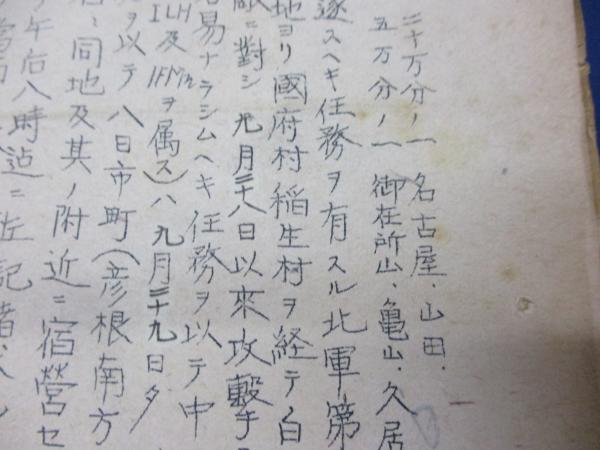 二十万分ノ一 名古屋、山田、
五万分ノ一 御在所山、亀山、久居
遂スヘキ任務ヲ有スル北軍第
地ヨリ國府村稲生村ヲ経テ白
敵ニ對シ九月二十八日以來攻擊
易ナラシムヘキ任務ヲ以テ中
ILH及 ヲ属ス)ハ九月二十九日夕
ヲ以テ八日市町(彦根南方
同地及其ノ附近ニ宿營セ
午后八時迠ニ左記諸